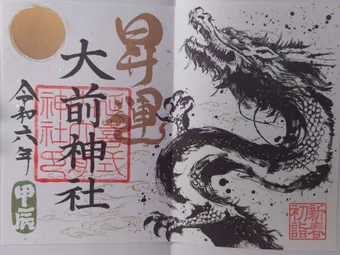 昇運
大前神社
令和六年
甲辰
新春
初詣